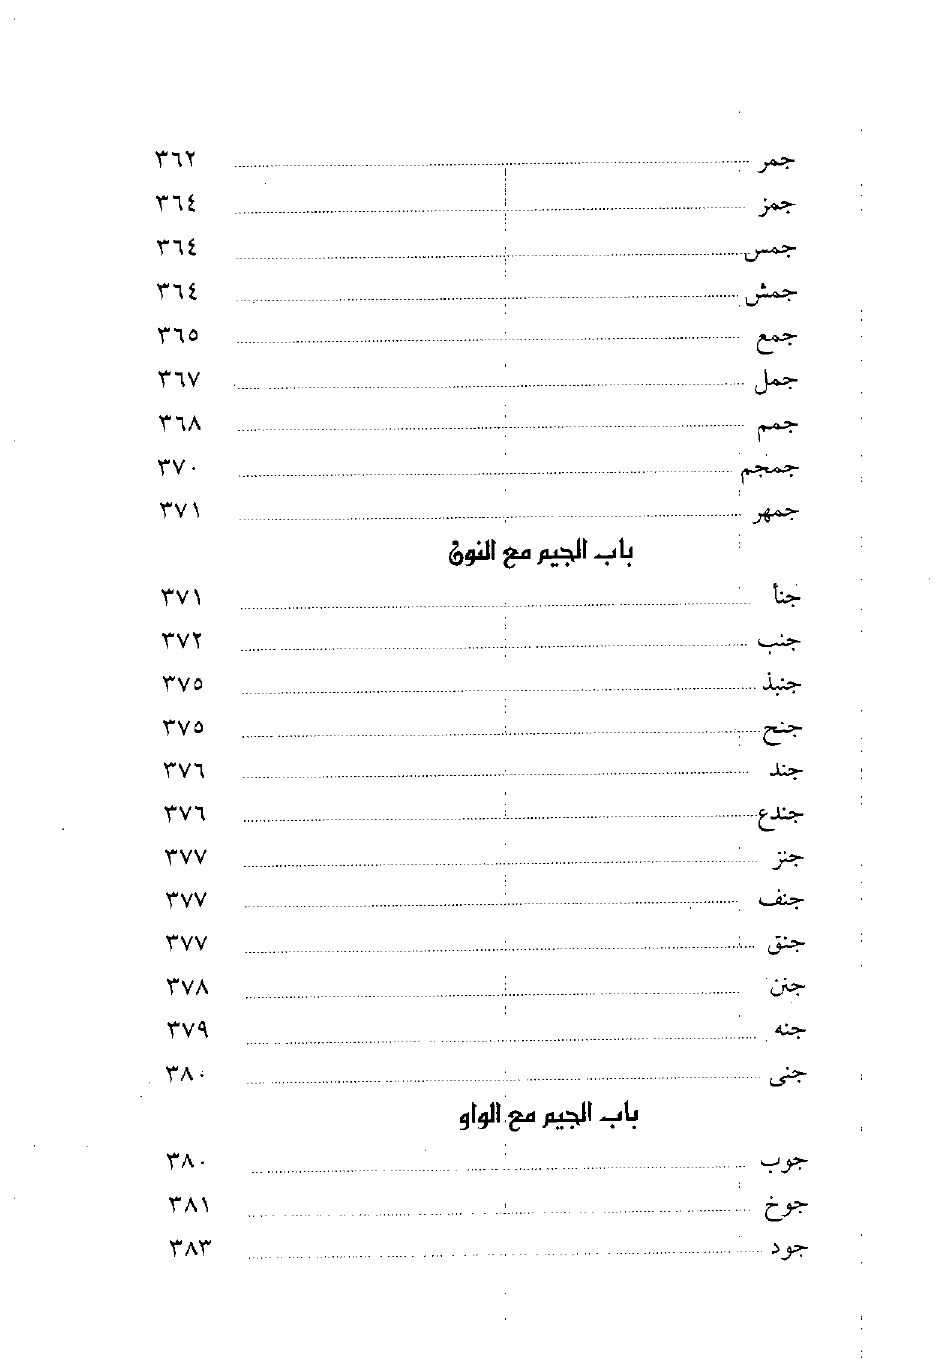 جمر ٣٦٢
جمز ٣٦٤
جمس ٣٦٤
جمش ٣٦٤
جمع ٣٦٥
جمل ٣٦٧
جمم ٣٦٨
جمجم ٣٧٠
جمهر ٣٧١
باب الجيم مع النون
جنأ ٣٧١
جنب ٣٧٢
جنبذ ٣٧٥
جنح ٣٧٥
جند ٣٧٦
جندع ٣٧٦
جنز ٣٧٧
جنف ٣٧٧
جنق ٣٧٧
جنن ٣٧٨
جنه ٣٧٩
جنى ٣٨٠
باب الجيم مع الواو
جوب ٣٨٠
جوخ ٣٨١
جود ٣٨٣